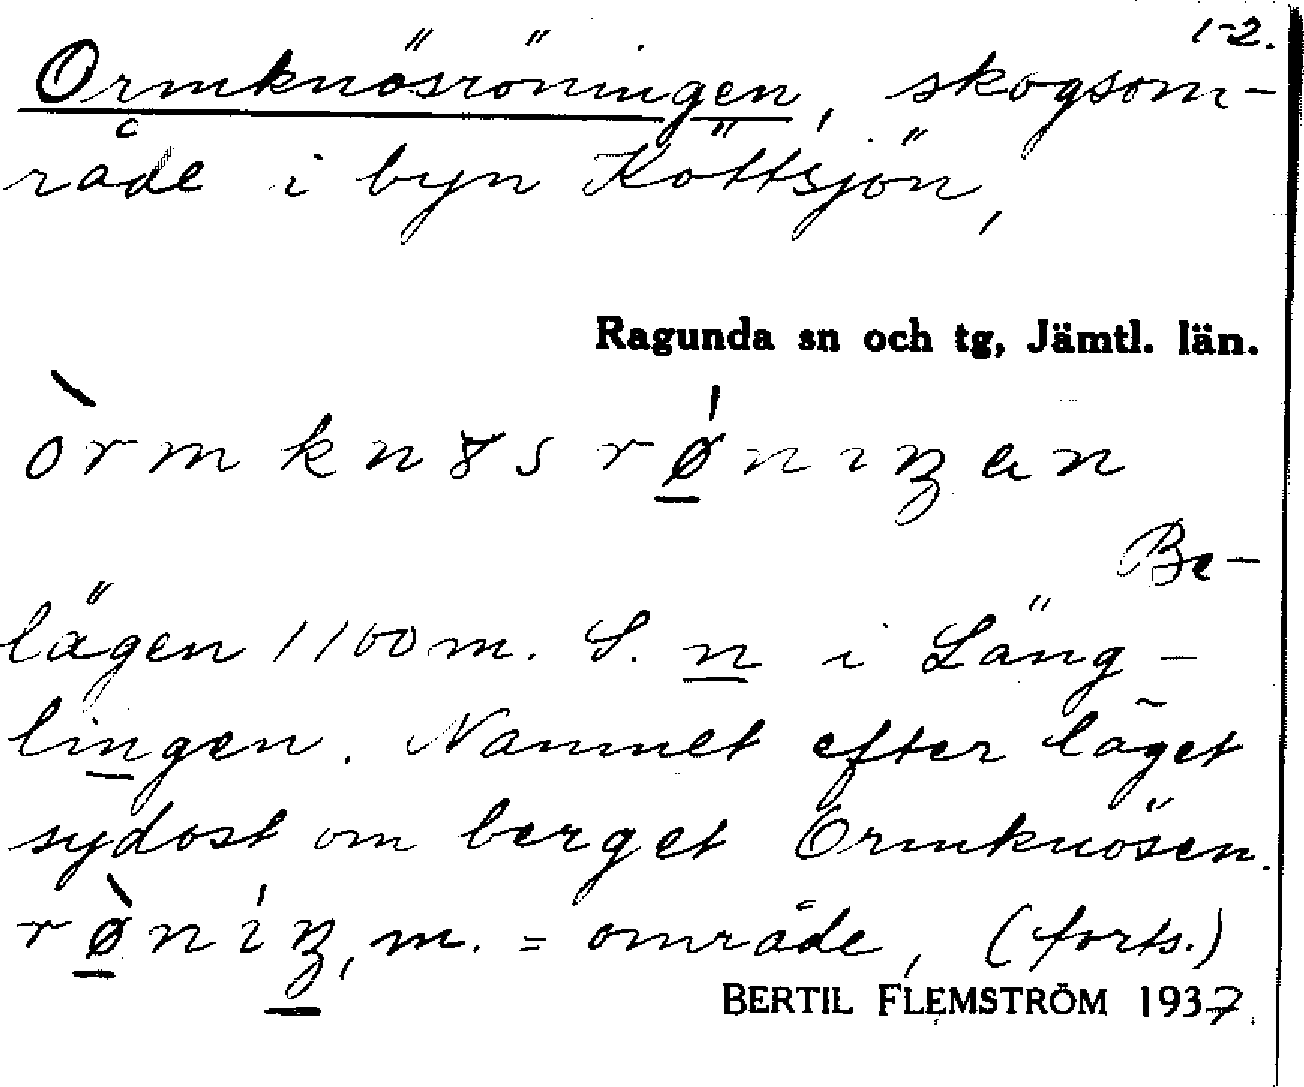 1-2.
Ormknösröningen, skogsom-
råde i byn Köttsjön,
Ragunda sn och tg, Jämtl. län.
òrmknɤsrǿnıŋan
Be-
lägen 1100 m. S. n i Läng-
lingen. Namnet efter läget
sydost om berget Ormknösen.
rø̀níŋ, m. = område, (forts.)
BERTIL FLEMSTRÖM 1937.